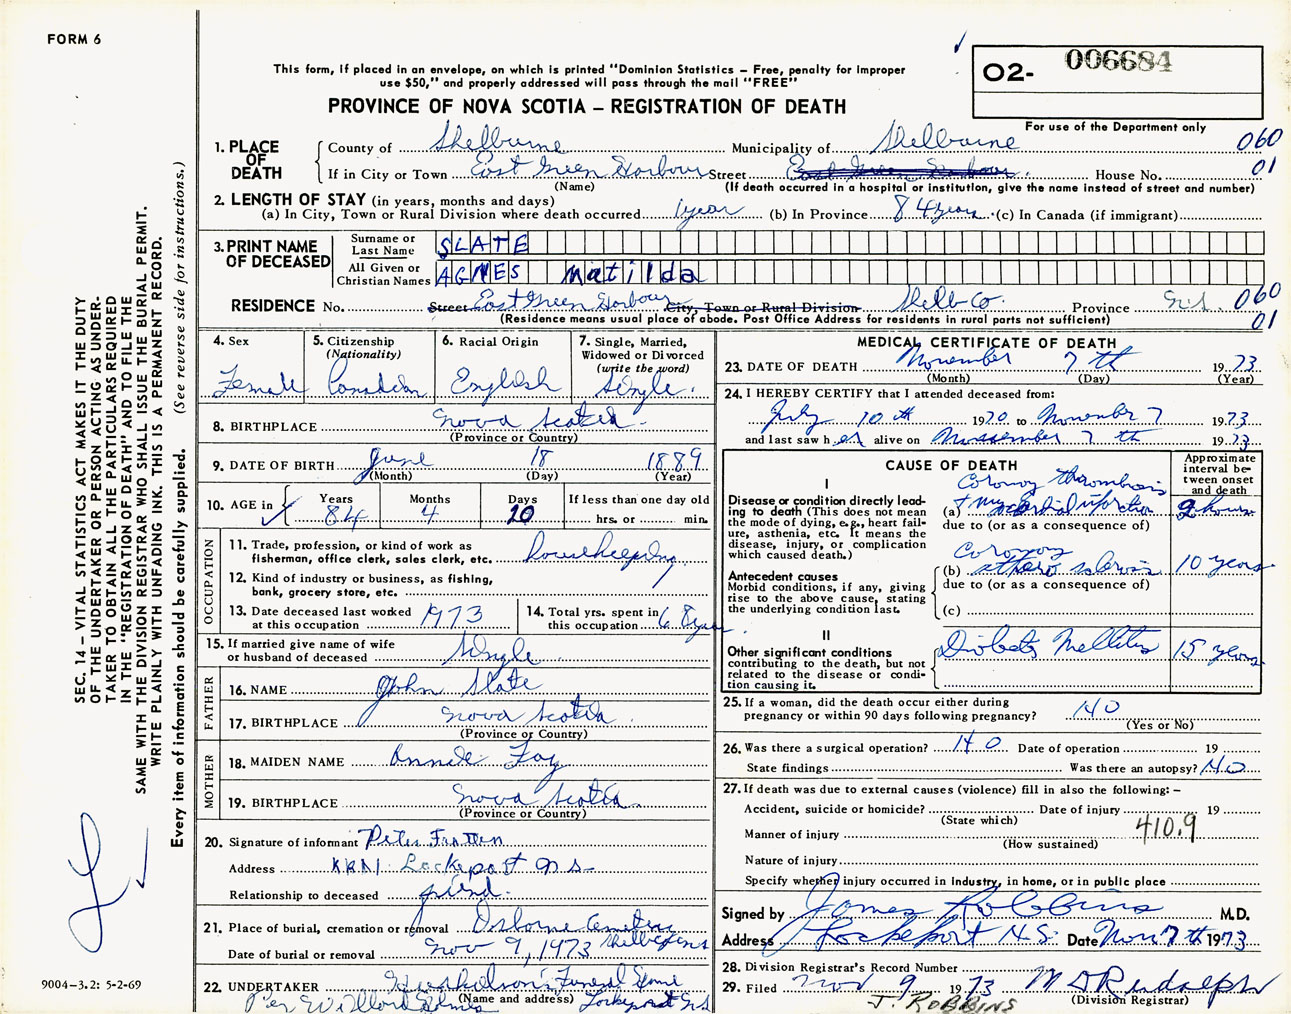 FORM 6
This form, if placed in an envelope, on which is printed "Dominion Statistics – Free, penalty for improper
use $50," and properly addressed will pass through the mail "FREE"
PROVINCE OF NOVA SCOTIA – REGISTRATION OF DEATH
O2- 006684
For use of the Department only
1. PLACE OF DEATH
County of Shelburne Municipality of Shelburne 060
If in City or Town East Green Harbour Street East Green Harbour House No. 01
(Name) (If death occurred in a hospital or institution, give the name instead of street and number)
2. LENGTH OF STAY (in years, months and days)
(a) In City, Town or Rural Division where death occurred 1 year (b) In Province 84 years (c) In Canada (if immigrant)
3. PRINT NAME OF DECEASED
Surname or Last Name SLATE
All Given or Christian Names AGNES Matilda
RESIDENCE No. Street East Green Harbour City, Town or Rural Division Shelb Co. Province N.S. 060
(Residence means usual place of abode. Post Office Address for residents in rural parts not sufficient) 01
4. Sex
Female
5. Citizenship
(Nationality)
Canadian
6. Racial Origin
English
7. Single, Married,
Widowed or Divorced
(write the word)
Single
8. BIRTHPLACE Nova Scotia
(Province or Country)
9. DATE OF BIRTH June 18 1889
(Month) (Day) (Year)
10. AGE in
Years Months Days If less than one day old
84 4 20 hrs. or min.
OCCUPATION
11. Trade, profession, or kind of work as
fisherman, office clerk, sales clerk, etc. housekeeping
12. Kind of industry or business, as fishing,
bank, grocery store, etc.
13. Date deceased last worked
at this occupation 1973
14. Total yrs. spent in
this occupation 68 years
15. If married give name of wife
or husband of deceased Single
FATHER
16. NAME John Slate
17. BIRTHPLACE Nova Scotia
(Province or Country)
MOTHER
18. MAIDEN NAME Annie Foy
19. BIRTHPLACE Nova Scotia
(Province or Country)
20. Signature of informant Peter
Address RR#1 Lockeport N S
Relationship to deceased friend
21. Place of burial, cremation or removal Osborne Cemetery
Date of burial or removal Nov 9, 1973
22. UNDERTAKER Funeral Home
(Name and address)
Per Lockeport N.S
MEDICAL CERTIFICATE OF DEATH
23. DATE OF DEATH November 7th 1973
(Month) (Day) (Year)
24. I HEREBY CERTIFY that I attended deceased from:
July 10th 1970 to November 7 1973
and last saw her alive on November 7th 1973
CAUSE OF DEATH
Approximate
interval be-
tween onset
and death
I
Disease or condition directly lead-
ing to death (This does not mean
the mode of dying, e.g., heart fail-
ure, asthenia, etc. It means the
disease, injury, or complication
which caused death.)
Coronary thrombosis
(a) + myocardial infarction 2 hours
due to (or as a consequence of)
Antecedent causes
Morbid conditions, if any, giving
rise to the above cause, stating
the underlying condition last.
Coronary
(b) athero sclerosis 10 years
due to (or as a consequence of)
(c)
II
Other significant conditions
contributing to the death, but not
related to the disease or condi-
tion causing it.
Diabetes Mellitus 15 years
25. If a woman, did the death occur either during
pregnancy or within 90 days following pregnancy? NO
(Yes or No)
26. Was there a surgical operation? NO Date of operation 19
State findings Was there an autopsy? NO
27. If death was due to external causes (violence) fill in also the following: –
Accident, suicide or homicide? Date of injury 19
(State which)
Manner of injury 410.9
(How sustained)
Nature of injury
Specify whether injury occurred in Industry, in home, or in public place
Signed by James Robbins M.D.
Address Lockeport N.S. Date Nov 7th 1973
28. Division Registrar's Record Number
29. Filed Nov 9 1973 M D Rudolph
(Division Registrar)
J. ROBBINS
SEC. 14 – VITAL STATISTICS ACT MAKES IT THE DUTY
OF THE UNDERTAKER OR PERSON ACTING AS UNDER-
TAKER TO OBTAIN ALL THE PARTICULARS REQUIRED
IN THE "REGISTRATION OF DEATH" AND TO FILE THE
SAME WITH THE DIVISION REGISTRAR WHO SHALL ISSUE THE BURIAL PERMIT.
WRITE PLAINLY WITH UNFADING INK. THIS IS A PERMANENT RECORD.
Every item of information should be carefully supplied. (See reverse side for instructions.)
9004-3.2: 5-2-69